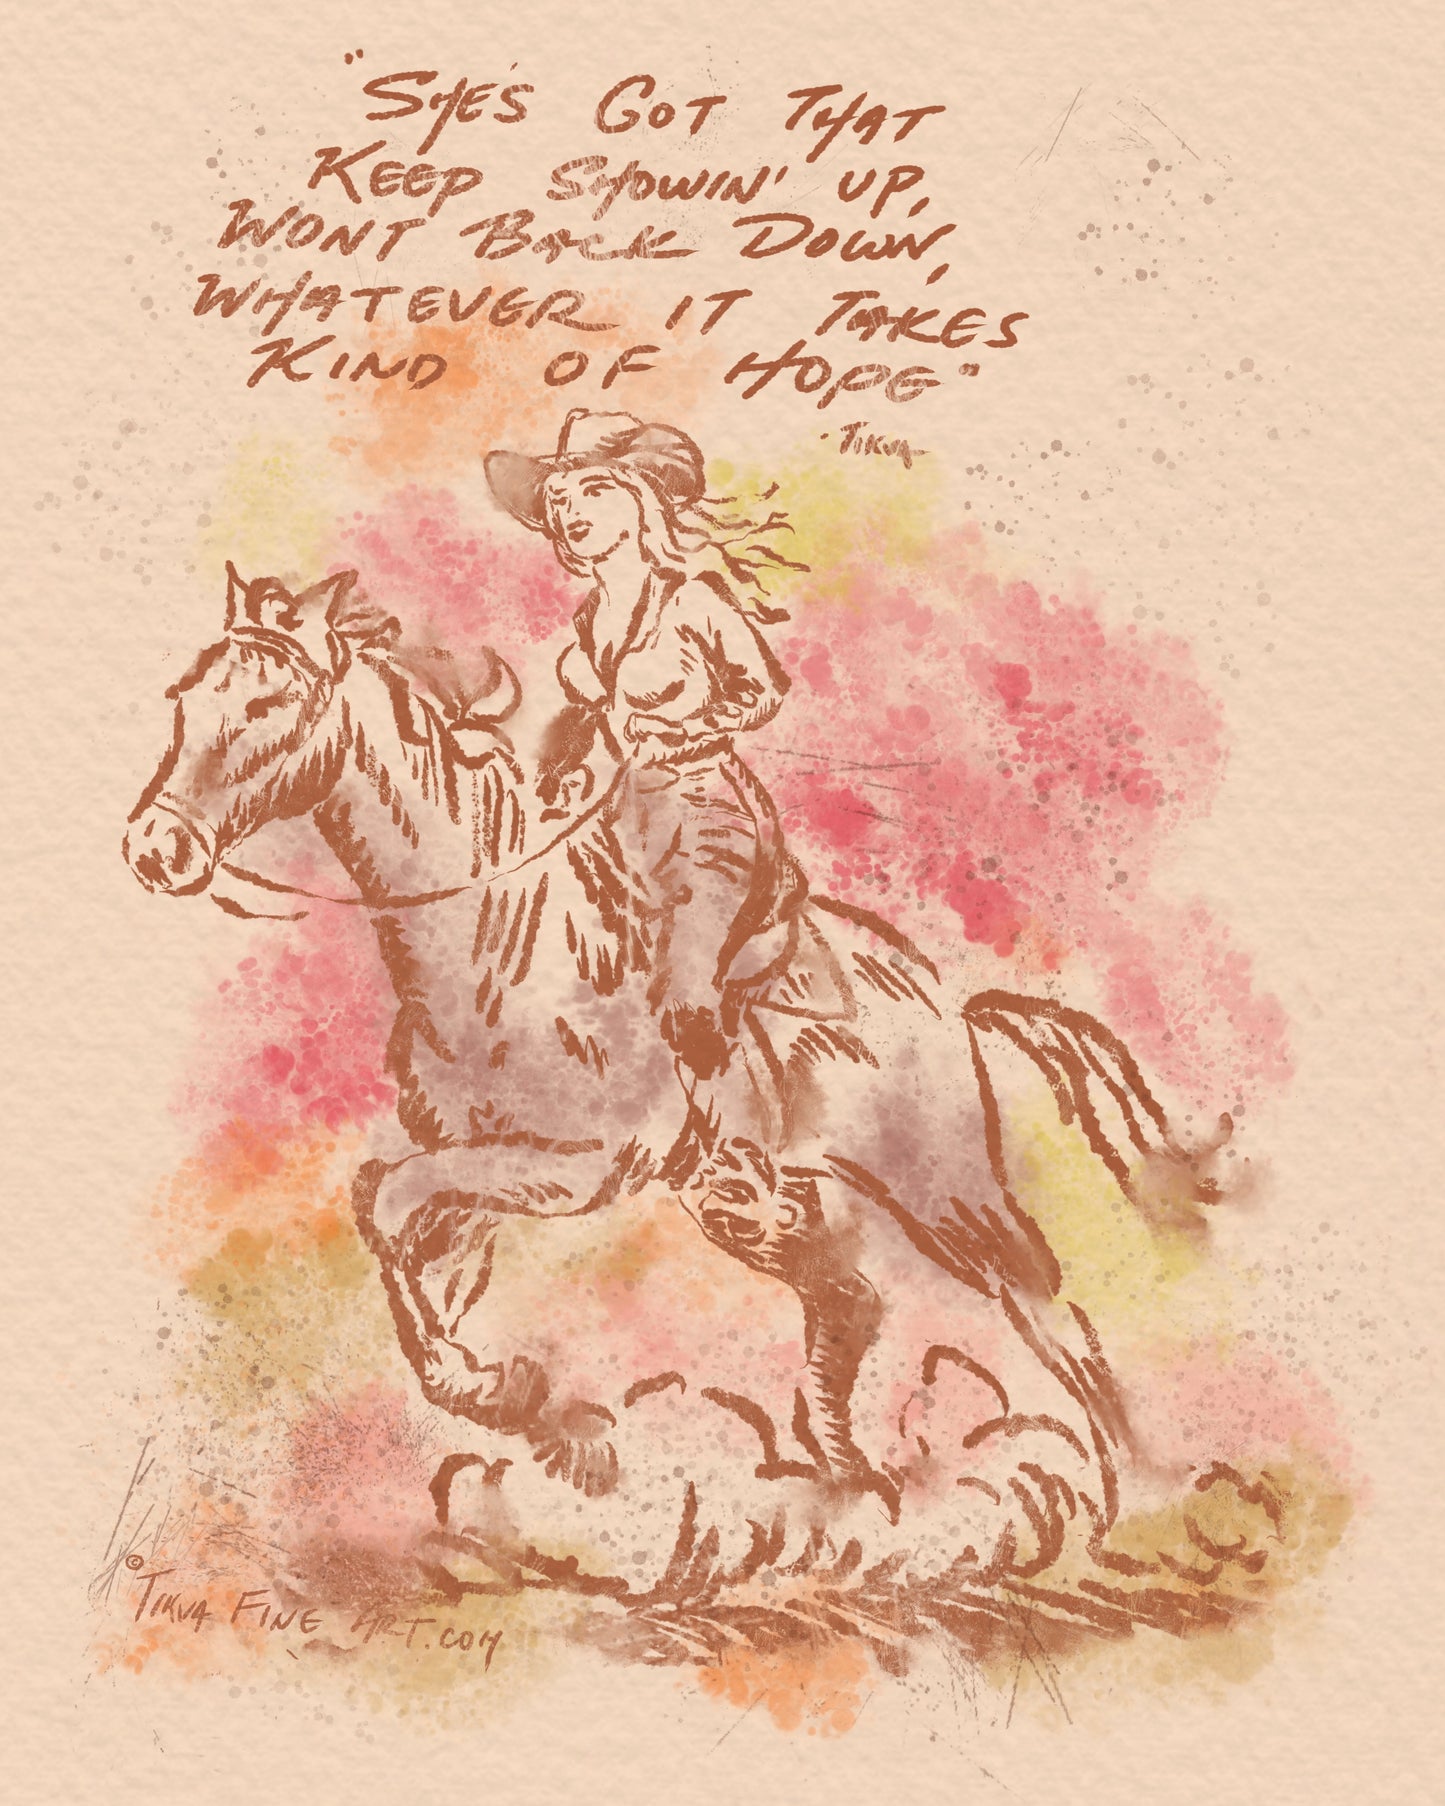 "She's Got That
Keep Showin' up,
Wont Back Down,
Whatever it Takes
Kind of Hope"
·Tikva
©
Tikva Fine Art.com